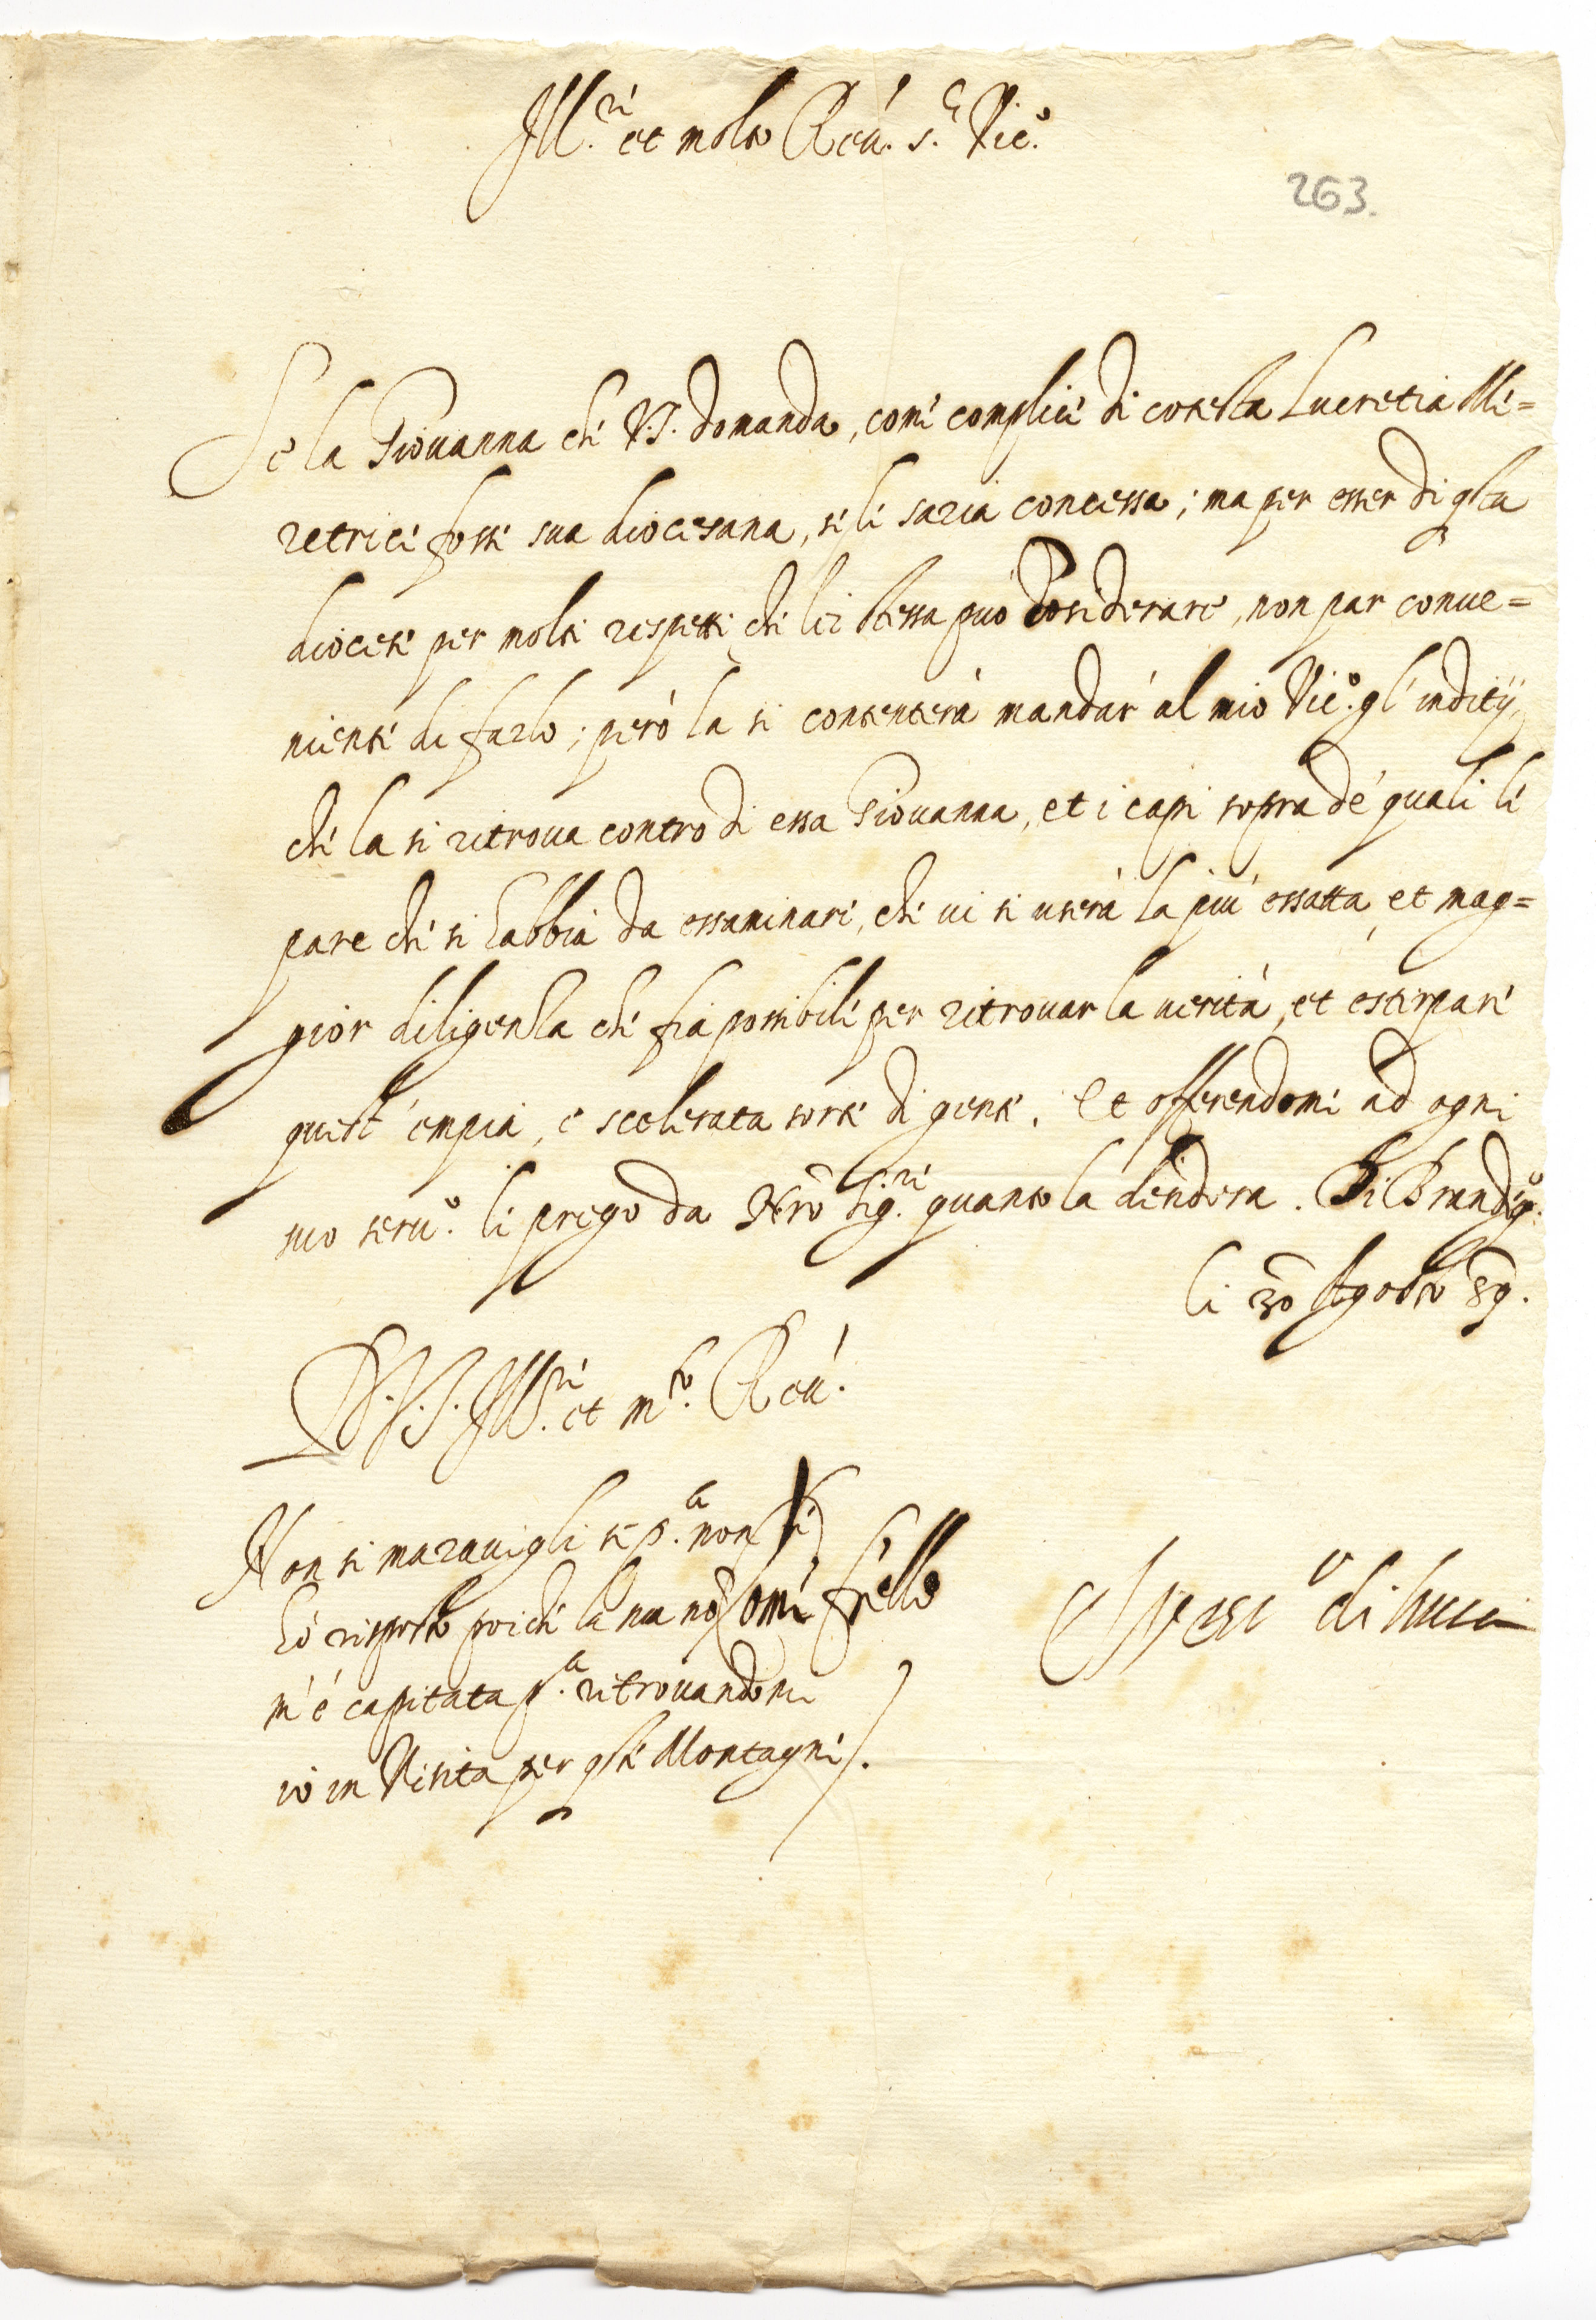 Ill.ri et molto Reu. s.r Vic.o
263.
Se la Giouanna che V.S. domanda, come complice di cotesta Lucretia Me=
retrice fosse sua diocesana, se li saria concessa; ma per esser di q̃sta
diocese per molti respetti che lei stessa può considerare, non par conue=
niente di farlo; però la si contenterà mandar' al mio Vic.o gl'inditij,
che la si ritroua contro di essa Giouanna, et i capi sopra de' quali li
pare che si habbia da essaminare, che ui si userà la più essatta, et mag=
gior diligenza che sia possibile per ritrouar la uerità, et estirpare
quest' empia, e scelerata sorte di gente. Et offerendomi ad ogni
suo seru.o li prego da N̄ro Sig.re quanto la desidera. Di Brandeg.o
li 30 Agosto 89.
D. V. S. Ill.re et m.to Reu.
Non si marauigli se p.a non li
hò risposto poiche la sua nõ
m'è capitata p.a ritrouandomi
io in Visita per q̃ste Montagne.
come fr̃ello
di Lucca